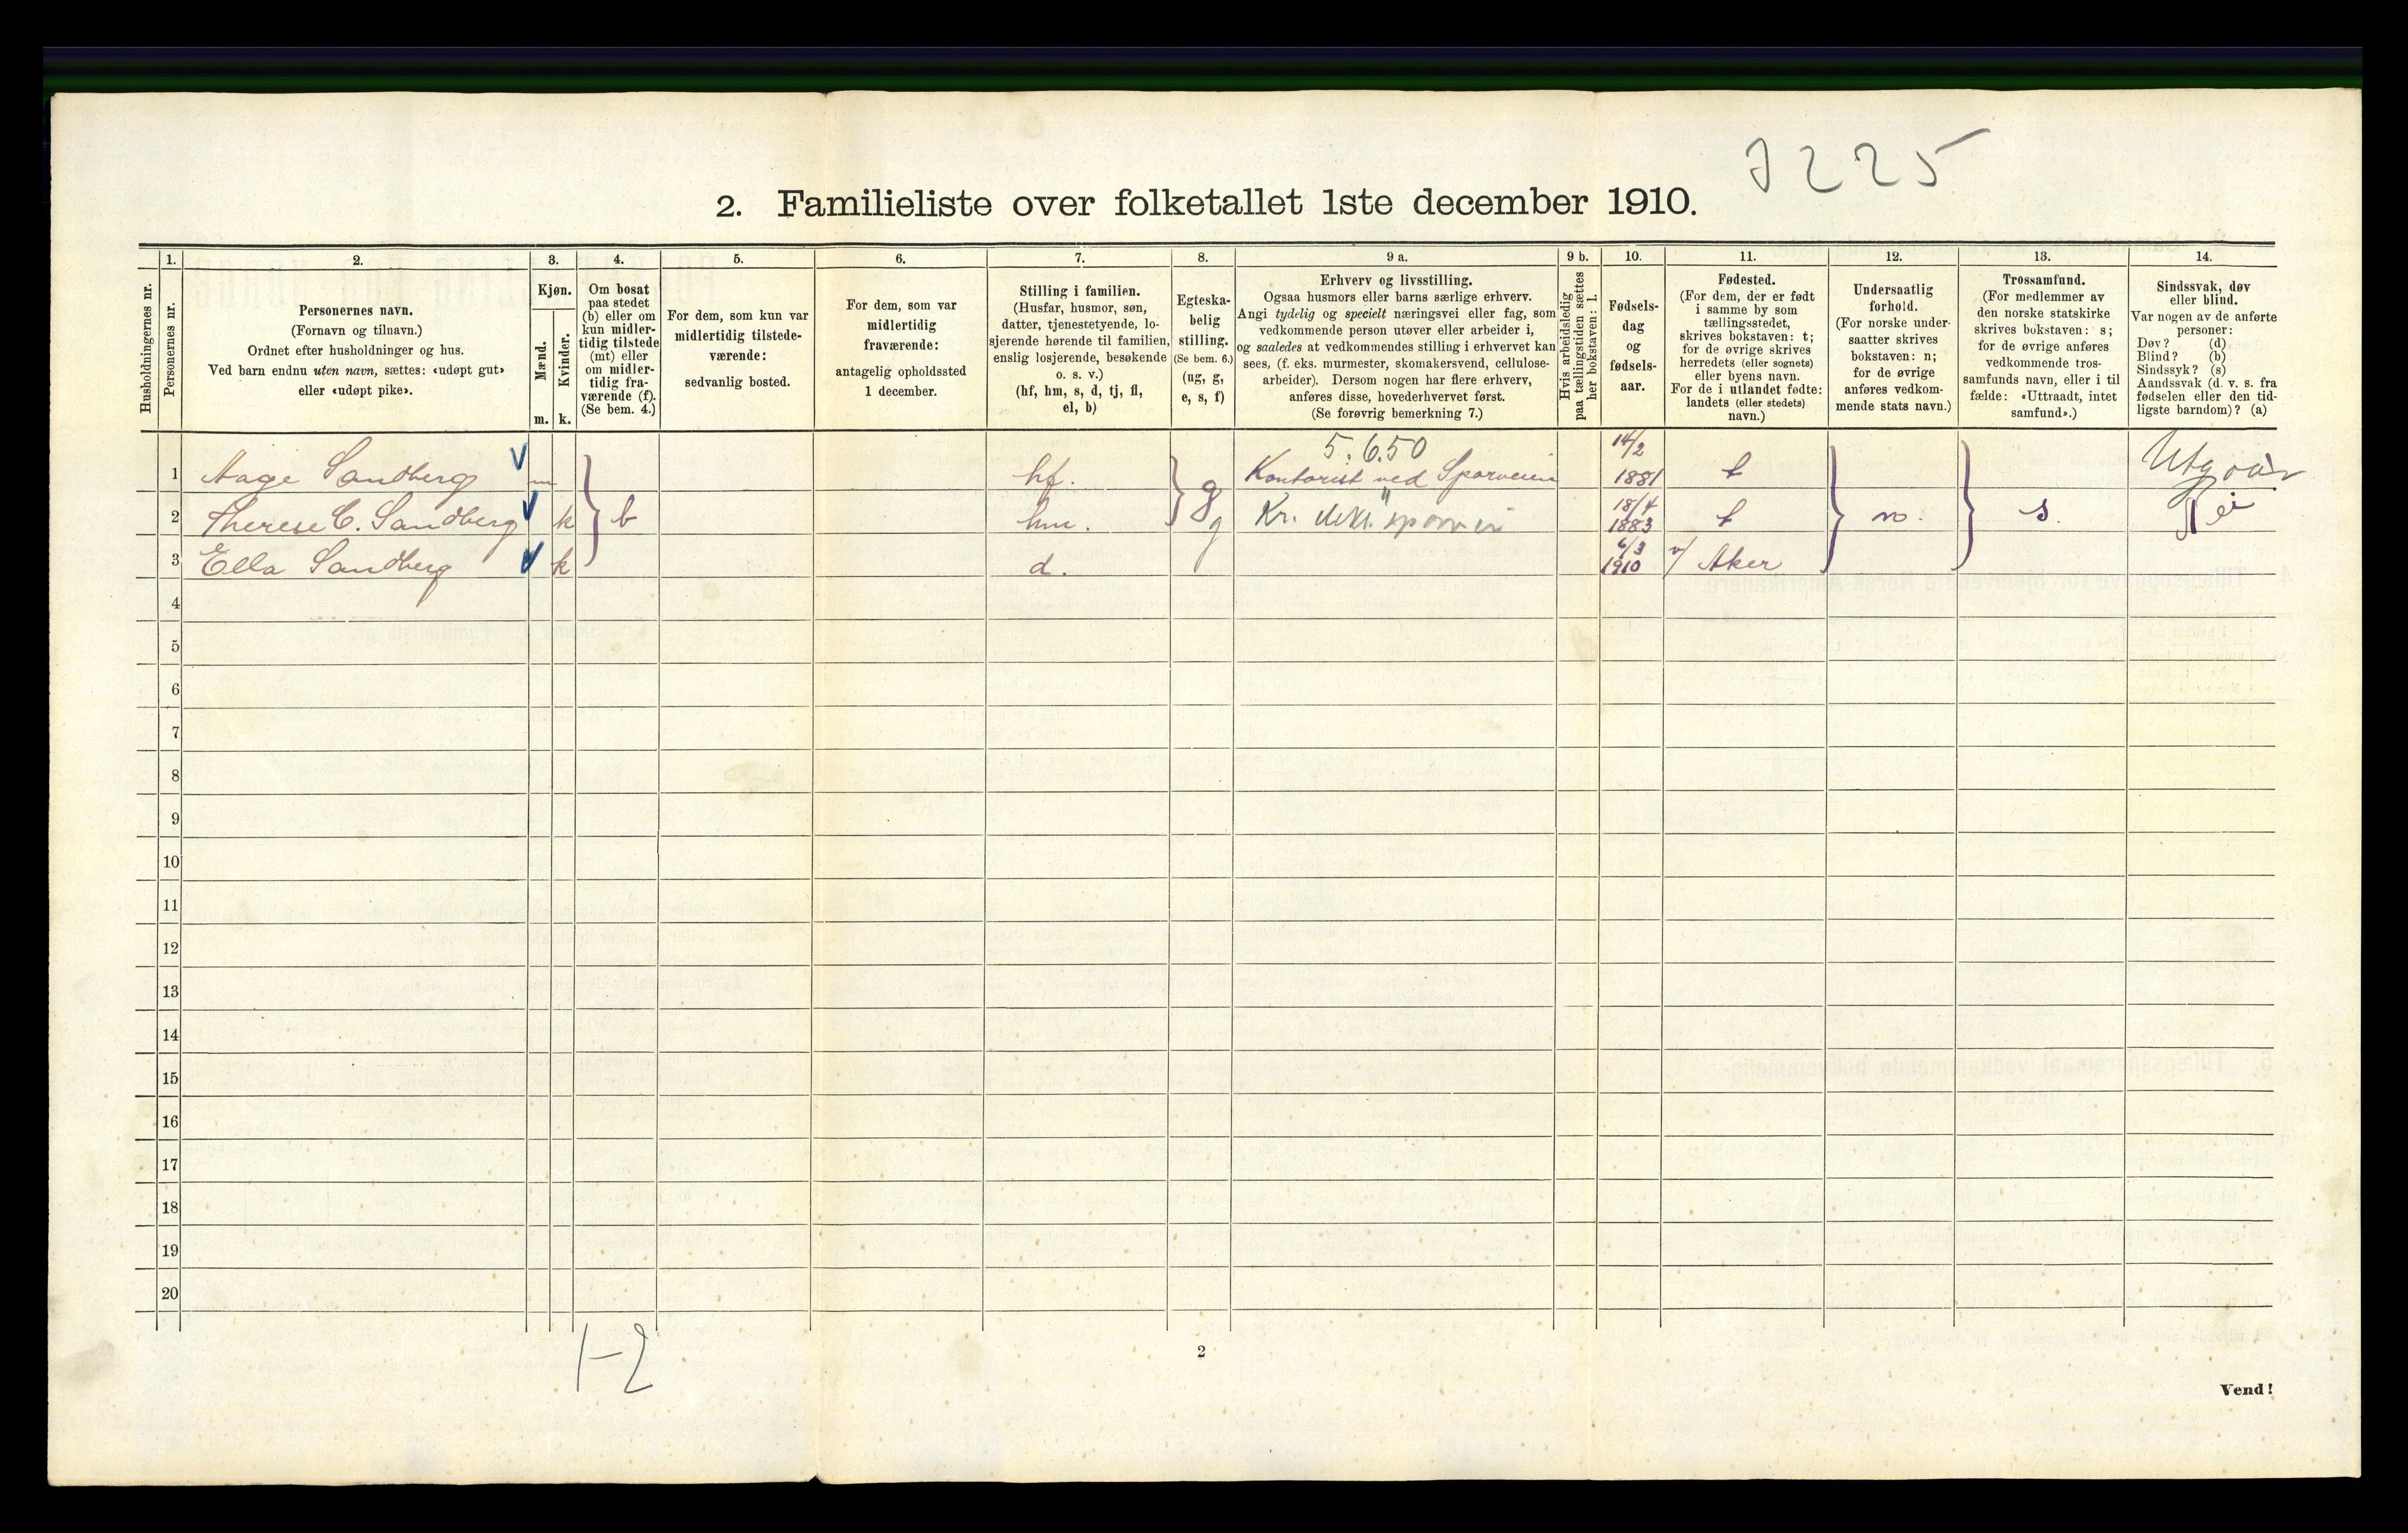 J225
2. Familieliste over folketallet 1ste december 1910.
Husholdningernes nr.
1.
Personernes nr.
2.
Personernes navn.
(Fornavn og tilnavn.)
Ordnet efter husholdninger og hus.
Ved barn endnu uten navn, sættes: «udøpt gut»
eller «udøpt pike».
3.
Kjøn.
Mænd.
m.
Kvinder.
k.
4.
Om bosat
paa stedet
(b) eller om
kun midler-
tidig tilstede
(mt) eller
om midler-
tidig fra-
værende (f).
(Se bem. 4.)
5.
For dem, som kun var
midlertidig tilstede-
værende:
sedvanlig bosted.
6.
For dem, som var
midlertidig
fraværende:
antagelig opholdssted
1 december.
7.
Stilling i familien.
(Husfar, husmor, søn,
datter, tjenestetyende, lo-
sjerende hørende til familien,
enslig losjerende, besøkende
o. s. v.)
(hf, hm, s, d, tj, fl,
el, b)
8.
Egteska-
belig
stilling.
(Se bem. 6.)
(ug, g,
e, s, f)
9 a.
Erhverv og livsstilling.
Ogsaa husmors eller barns særlige erhverv.
Angi tydelig og specielt næringsvei eller fag, som
vedkommende person utøver eller arbeider i,
og saaledes at vedkommendes stilling i erhvervet kan
sees, (f. eks. murmester, skomakersvend, cellulose-
arbeider). Dersom nogen har flere erhverv,
anføres disse, hovederhvervet først.
(Se forøvrig bemerkning 7.)
9 b.
Hvis arbeidsledig
paa tællingstiden sættes
her bokstaven: l.
10.
Fødsels-
dag
og
fødsels-
aar.
11.
Fødested.
(For dem, der er født
i samme by som
tællingsstedet,
skrives bokstaven: t;
for de øvrige skrives
herredets (eller sognets)
eller byens navn.
For de i utlandet fødte:
landets (eller stedets)
navn.)
12.
Undersaatlig
forhold.
(For norske under-
saatter skrives
bokstaven: n;
for de øvrige
anføres vedkom-
mende stats navn.)
13.
Trossamfund.
(For medlemmer av
den norske statskirke
skrives bokstaven: s;
for de øvrige anføres
vedkommende tros-
samfunds navn, eller i til
fælde: «Uttraadt, intet
samfund».)
14.
Sindssvak, døv
eller blind.
Var nogen av de anførte
personer:
Døv? (d)
Blind? (b)
Sindssyk? (s)
Aandssvak (d. v. s. fra
fødselen eller den tid-
ligste barndom)? (a)
5.6.50 14/2 Utgaar
1 Aage Sandberg m hf. g Kontorist ved Sporveien 1881 t
2 Therese C. Sandberg k b hm. g Kr. elekt. sporvei 18/4 1883 t n. s. Nei
3 Ella Sandberg k d. 6/3 1910 v/ Aker
4
5
6
7
8
9
10
11
12
13
14
15
16
17
18
19
20
1-2
2
Vend!